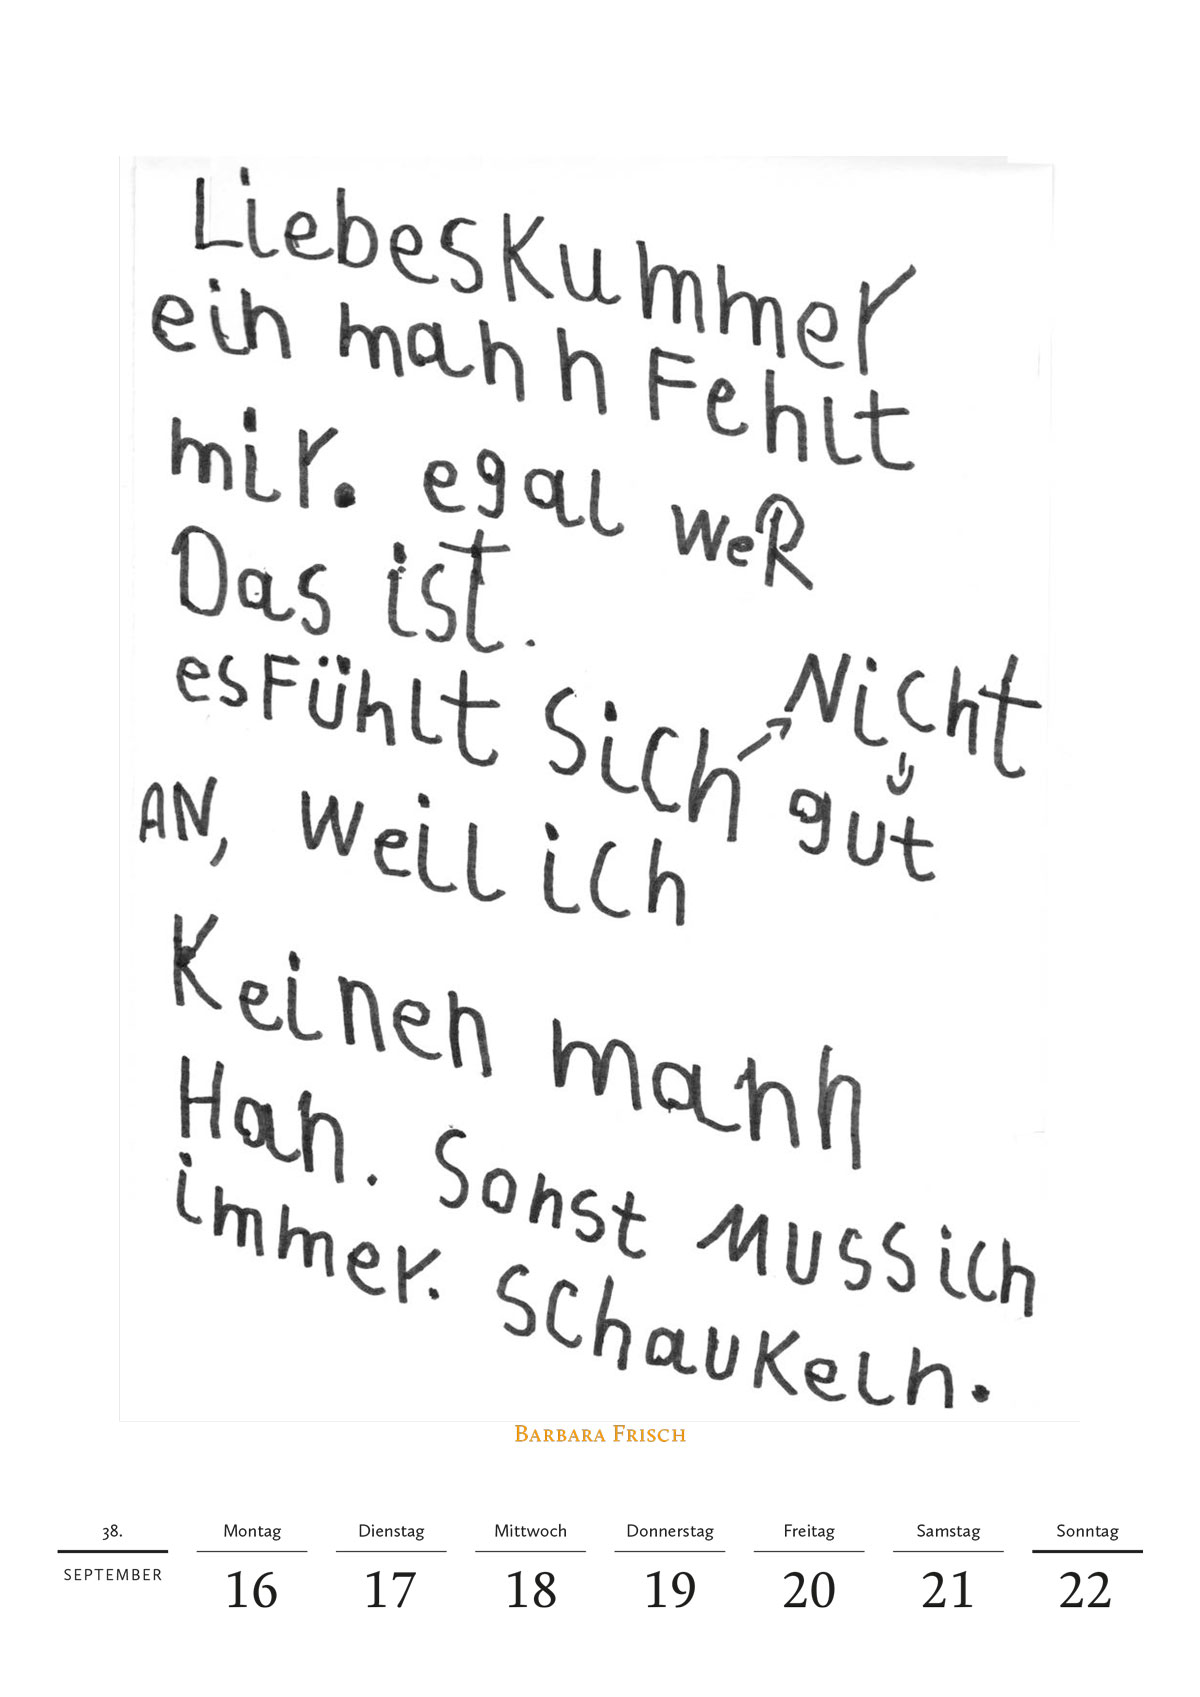 LiebesKummer
ein mann Fehlt
mir. egal weR
Das ist.
esFühlt Sich → Nicht
↓
gut
AN, weil ich
Keinen mann
Han. Sonst MUSSich
immer. SchauKeln.
BARBARA FRISCH
38. Montag Dienstag Mittwoch Donnerstag Freitag Samstag Sonntag
SEPTEMBER 16 17 18 19 20 21 22